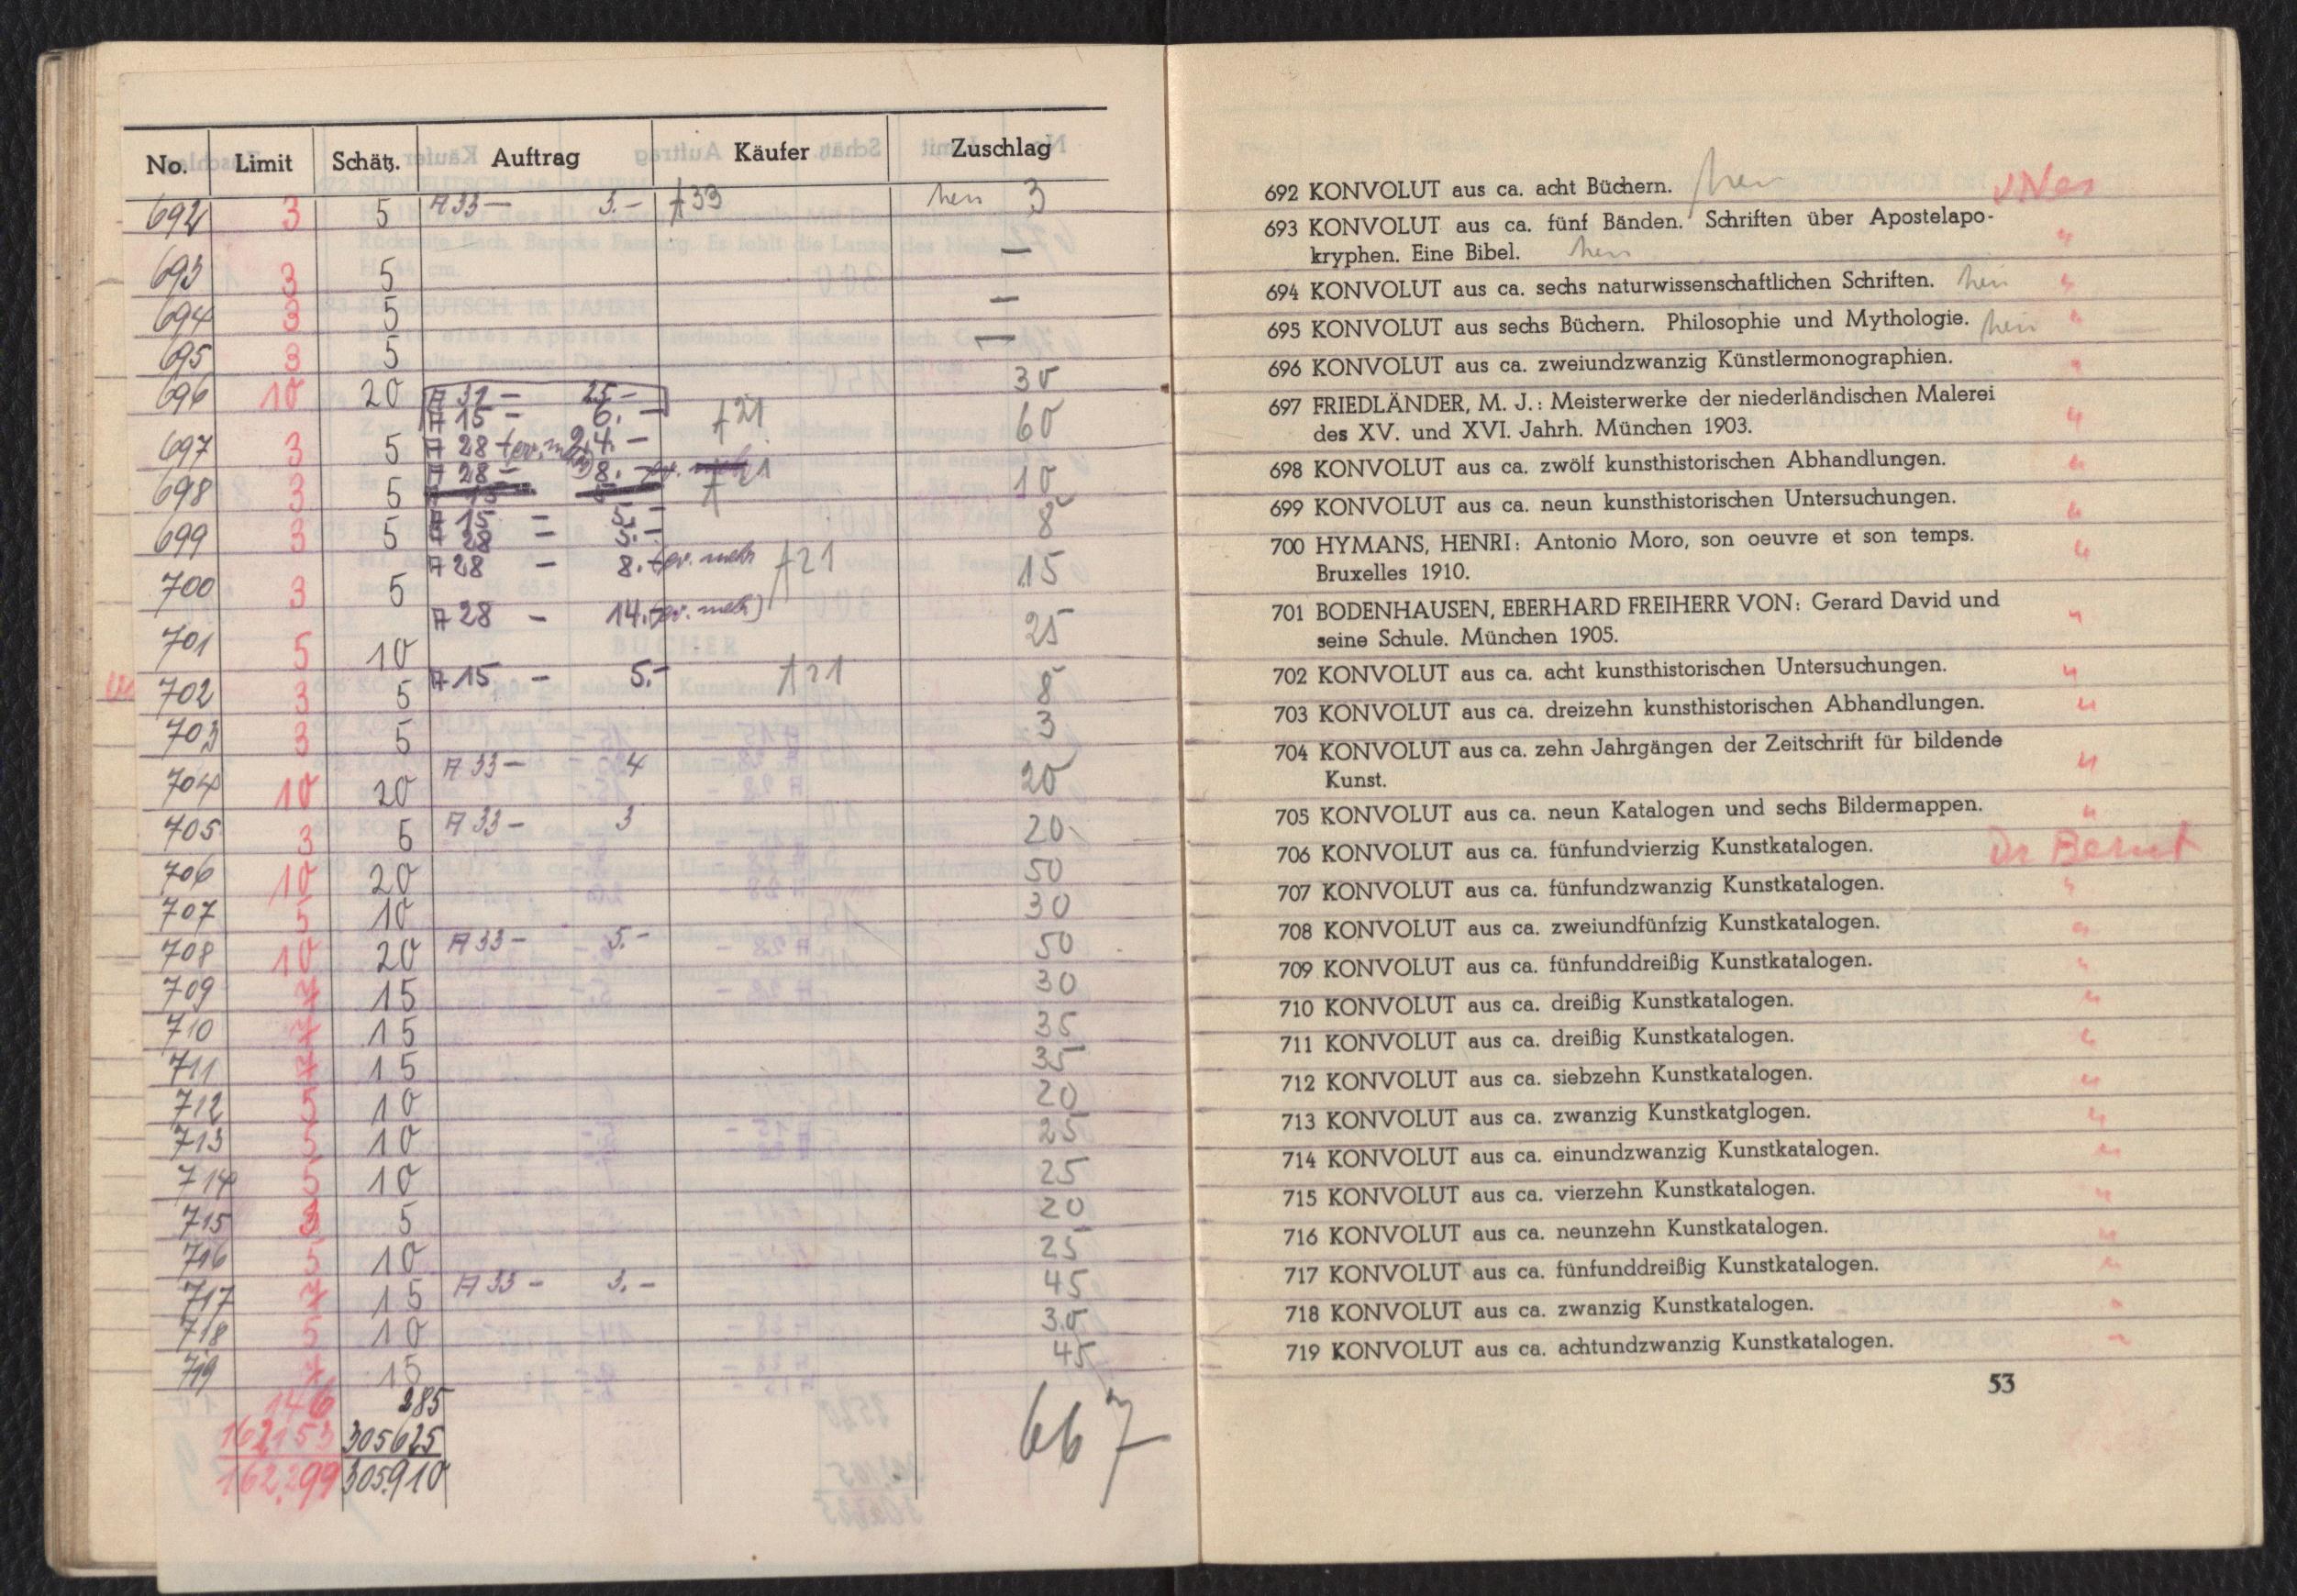 No. Limit Schätz. Auftrag Käufer Zuschlag
692 3 5 A 33 – 3.– A 33 3
693 3 5 —
694 3 5 —
695 3 5 —
696 10 20 A 32 – 25.– 30
A 15 – 6.– A 21
697 3 5 A 28 60
A 28 – 8.–
698 3 5 10
A 15 – 5.–
699 3 5 A 28 – 5.– 8
A 28 – 8.– (ev. mehr) A 21
700 3 5 15
A 28 – 14.– (ev. mehr)
701 5 10 25
702 3 5 A 15 – 5.– A 21 8
703 3 5 3
704 10 20 A 33 – 4 20
705 3 5 A 33 – 3 20
706 10 20 50
707 5 10 30
708 10 20 A 33 – 5.– 50
709 7 15 30
710 7 15 35
711 7 15 35
712 5 10 20
713 5 10 25
714 5 10 25
715 3 5 20
716 5 10 25
717 7 15 A 33 – 3.– 45
718 5 10 30
719 7 15 45
146 285
162153 305625 667
162.299 305.910
692 KONVOLUT aus ca. acht Büchern.
693 KONVOLUT aus ca. fünf Bänden. Schriften über Apostelapo-
kryphen. Eine Bibel. "
694 KONVOLUT aus ca. sechs naturwissenschaftlichen Schriften. "
695 KONVOLUT aus sechs Büchern. Philosophie und Mythologie. "
696 KONVOLUT aus ca. zweiundzwanzig Künstlermonographien. "
697 FRIEDLÄNDER, M. J.: Meisterwerke der niederländischen Malerei
des XV. und XVI. Jahrh. München 1903. "
698 KONVOLUT aus ca. zwölf kunsthistorischen Abhandlungen. "
699 KONVOLUT aus ca. neun kunsthistorischen Untersuchungen. "
700 HYMANS, HENRI: Antonio Moro, son oeuvre et son temps. "
Bruxelles 1910.
701 BODENHAUSEN, EBERHARD FREIHERR VON: Gerard David und "
seine Schule. München 1905.
702 KONVOLUT aus ca. acht kunsthistorischen Untersuchungen. "
703 KONVOLUT aus ca. dreizehn kunsthistorischen Abhandlungen. "
704 KONVOLUT aus ca. zehn Jahrgängen der Zeitschrift für bildende "
Kunst.
705 KONVOLUT aus ca. neun Katalogen und sechs Bildermappen. "
706 KONVOLUT aus ca. fünfundvierzig Kunstkatalogen. Dr Bernt
707 KONVOLUT aus ca. fünfundzwanzig Kunstkatalogen. "
708 KONVOLUT aus ca. zweiundfünfzig Kunstkatalogen. "
709 KONVOLUT aus ca. fünfunddreißig Kunstkatalogen. "
710 KONVOLUT aus ca. dreißig Kunstkatalogen. "
711 KONVOLUT aus ca. dreißig Kunstkatalogen. "
712 KONVOLUT aus ca. siebzehn Kunstkatalogen. "
713 KONVOLUT aus ca. zwanzig Kunstkatglogen. "
714 KONVOLUT aus ca. einundzwanzig Kunstkatalogen. "
715 KONVOLUT aus ca. vierzehn Kunstkatalogen. "
716 KONVOLUT aus ca. neunzehn Kunstkatalogen. "
717 KONVOLUT aus ca. fünfunddreißig Kunstkatalogen. "
718 KONVOLUT aus ca. zwanzig Kunstkatalogen. "
719 KONVOLUT aus ca. achtundzwanzig Kunstkatalogen. "
53